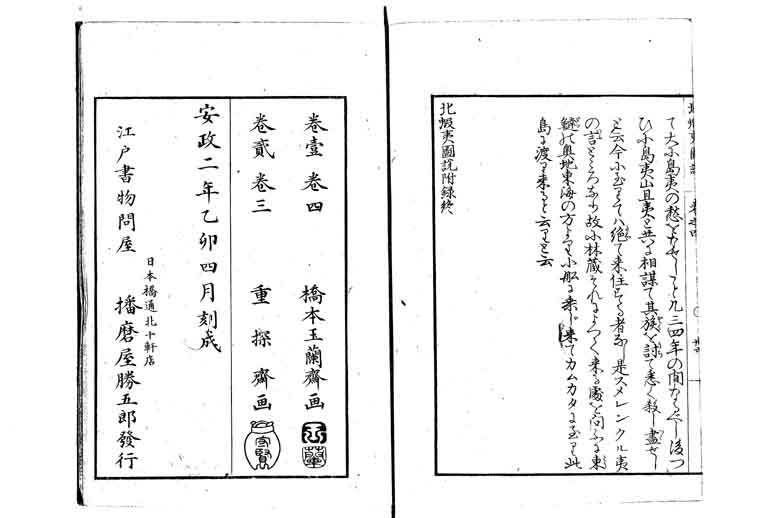 て大小島夷の愁をなせしこと凡三四年の間なるべし後つ
ひ小島夷山旦夷と共に相謀て其族を討て悉く殺し盡せし
と云今に至りては絶て来住する者なし是スメレンクル夷
の言ところなり故に林蔵それによつて来る處を問ふに東
奥地東海の方より小船に乗じ来てカムカタに至り此
島に渡り来ると云りと云
北蝦夷圖説附録終
卷壹 卷四 橋本玉蘭齋画
卷貳 卷三 重探齋画
安政二年乙卯四月刻成
日本橋通北十軒店
江戸書物問屋 播磨屋勝五郎發行